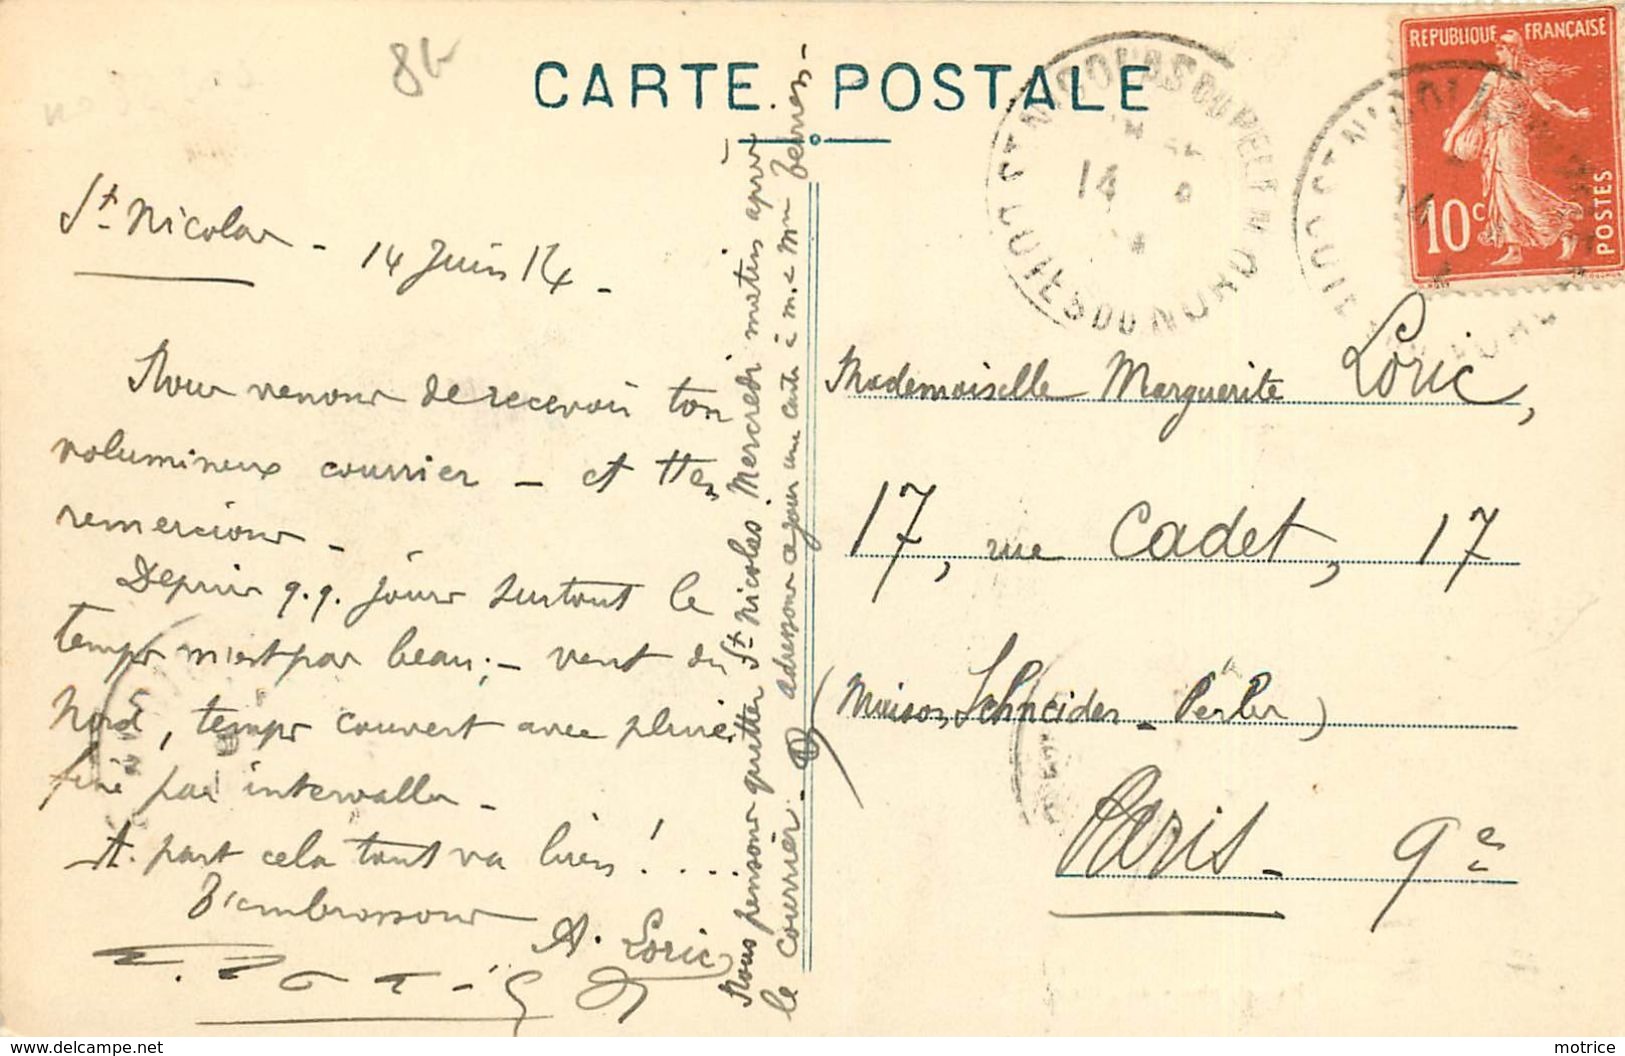 86
CARTE POSTALE
REPUBLIQUE FRANÇAISE
10c
POSTES
ST NICOLAS DU PELEM
14
CÔTES DU NORD
St Nicolas - 14 Juin 14 -
Nous venons de recevoir ton
volumineux courrier - et t'en
remercions -
Depuis q.q. jours surtout le
temps n'est pas beau ; - vent du
Nord, temps couvert avec pluie
fine par intervalles -
A part cela tout va bien ! ....
T'embrassons
A. Loric
Nous pensons quitter St Nicolas Mercredi matin après
le courrier - adressons ce jour une carte à m. & Mme
Mademoiselle Marguerite Loric,
17, rue Cadet, 17
(Maison Schneider - Perler)
Paris - 9e
motrice